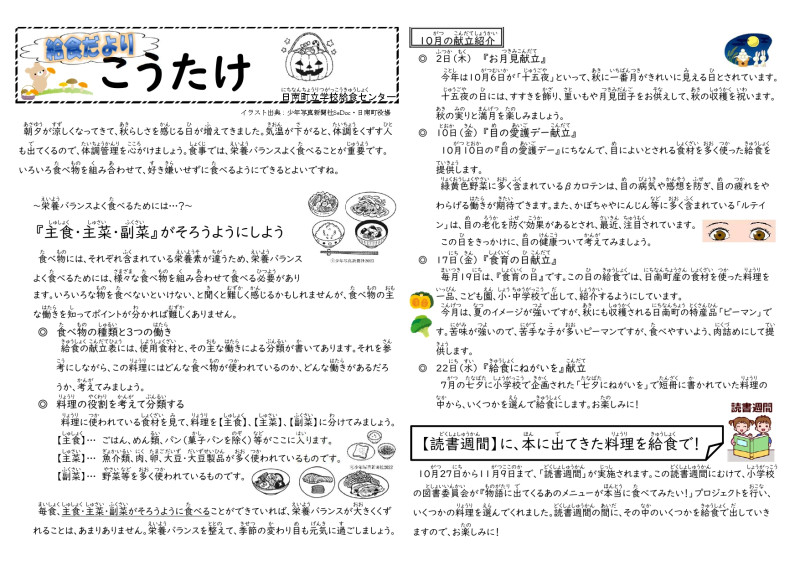 給食だより
こうたけ
日南町立学校給食センター
イラスト出典：少年写真新聞社SeDoc・日南町役場
朝夕が涼しくなってきて、秋らしさを感じる日が増えてきました。気温が下がると、体調をくずす人
も出てくるので、体調管理を心がけましょう。食事では、栄養バランスよく食べることが重要です。
いろいろ食べ物を組み合わせて、好き嫌いせずに食べるようにできるとよいですね。
～栄養バランスよく食べるためには…?～
『主食・主菜・副菜』がそろうようにしよう
食べ物には、それぞれ含まれている栄養素が違うため、栄養バランス
よく食べるためには、様々な食べ物を組み合わせて食べる必要があり
ます。いろいろな物を食べないといけない、と聞くと難しく感じるかもしれませんが、食べ物の主
な働きを知ってポイントが分かれば難しくありません。
◎ 食べ物の種類と3つの働き
給食の献立表には、使用食材と、その主な働きによる分類が書いてあります。それを参
考にしながら、この料理にはどんな食べ物が使われているのか、どんな働きがあるだろ
うか、考えてみましょう。
◎ 料理の役割を考えて分類する
料理に使われている食材を見て、料理を【主食】、【主菜】、【副菜】に分けてみましょう。
【主食】… ごはん、めん類、パン(菓子パンを除く)等がここに入ります。
【主菜】… 魚介類、肉、卵、大豆・大豆製品が多く使われているものです。
【副菜】… 野菜等を多く使われているものです。
毎食、主食・主菜・副菜がそろうように食べることができていれば、栄養バランスが大きくくず
れることは、あまりありません。栄養バランスを整えて、季節の変わり目も元気に過ごしましょう。
10月の献立紹介
◎ 2日(木) 『お月見献立』
今年は10月6日が「十五夜」といって、秋に一番月がきれいに見える日とされています。
十五夜の日には、すすきを飾り、里いもや月見団子をお供えして、秋の収穫を祝います。
秋の実りと満月を楽しみましょう。
◎ 10日(金) 『目の愛護デー献立』
10月10日の『目の愛護デー』にちなんで、目によいとされる食材を多く使った給食を
提供します。
緑黄色野菜に多く含まれているβカロテンは、目の病気や感想を防ぎ、目の疲れをや
わらげる働きが期待できます。また、かぼちゃやにんじん等に多く含まれている「ルテイ
ン」は、目の老化を防ぐ効果があるとされ、最近、注目されています。
この日をきっかけに、目の健康ついて考てみましょう。
◎ 17日(金) 『食育の日献立』
毎月19日は、『食育の日』です。この日の給食では、日南町産の食材を使った料理を
一品、こども園、小・中学校で出して、紹介するようにしています。
今月は、夏のイメージが強いですが、秋にも収穫される日南町の特産品「ピーマン」で
す。苦味が強いので、苦手な子が多いピーマンですが、食べやすいよう、肉詰めにして提
供します。
◎ 22日(水) 『給食にねがいを』献立
7月の七夕に小学校で企画された「七夕にねがいを」で短冊に書かれていた料理の
中から、いくつかを選んで給食にします。お楽しみに!
読書週間
【読書週間】に、本に出てきた料理を給食で!
10月27日から11月9日まで、「読書週間」が実施されます。この読書週間にむけて、小学校
の図書委員会が『物語に出てくるあのメニューが本当に食べてみたい!』プロジェクトを行い、
いくつかの料理を選んでくれました。読書週間の間に、その中のいくつかを給食で出していき
ますので、お楽しみに!